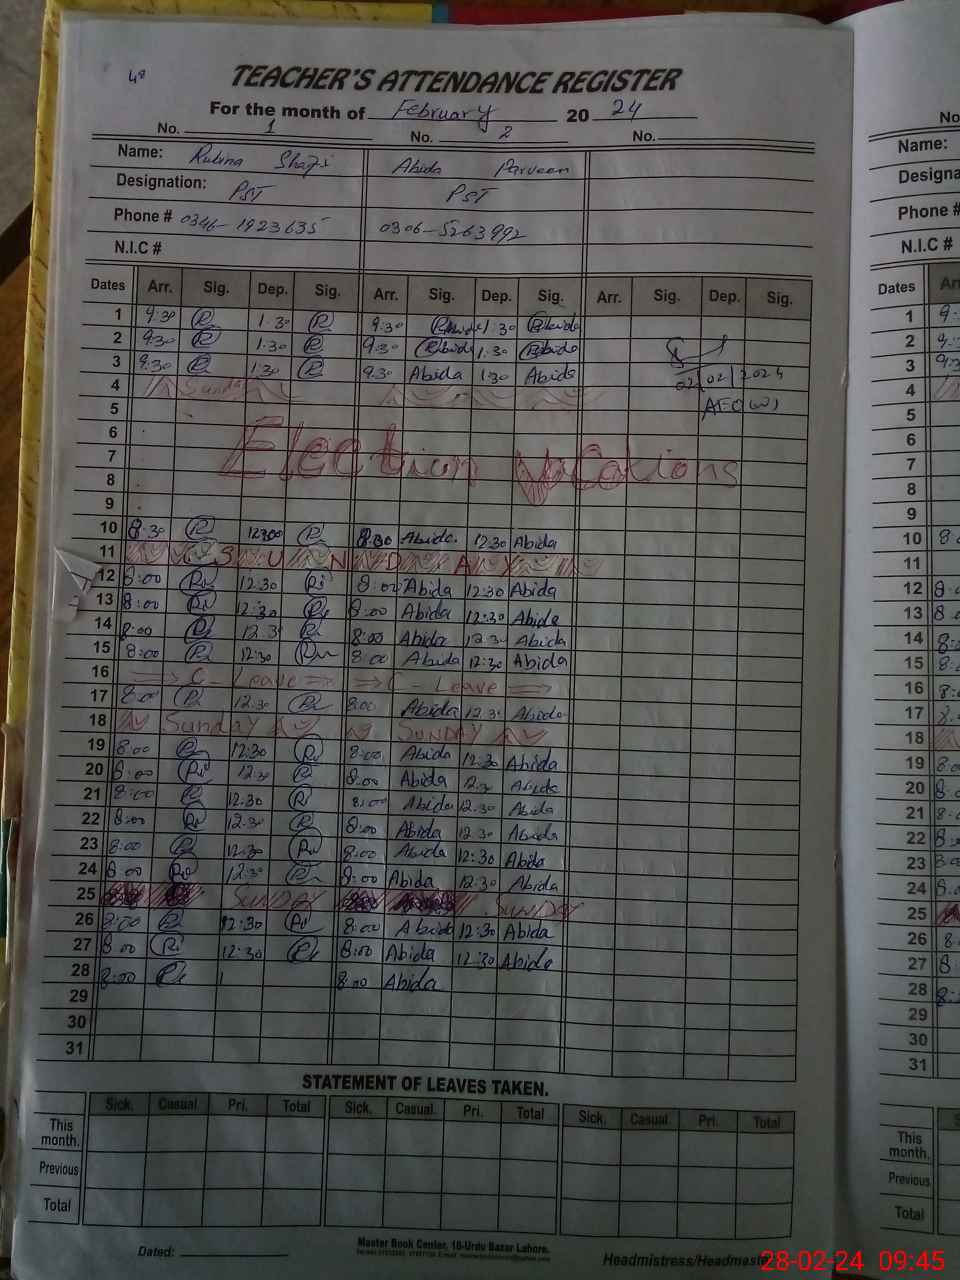 48
TEACHER'S ATTENDANCE REGISTER
For the month of February 20 24
No. 1 No. 2 No.
Name: Rubina Shafi Abida Parveen
Designation: PST PST
Phone # 0346-1923635 0306-5263992
N.I.C #
Dates Arr. Sig. Dep. Sig. Arr. Sig. Dep. Sig. Arr. Sig. Dep. Sig.
1 9:30 R 1:30 R 9:30 Abida 1:30 Abida
2 9:30 R 1:30 R 9:30 Abida 1:30 Abida
3 9:30 R 1:30 R 9:30 Abida 1:30 Abida 02/02/2024
4 Sunday AEO(W)
5
6
7 Election Vacations
8
9
10 8:30 R 12:00 R 8:30 Abida 12:30 Abida
11 SUNDAY
12 8:00 Ri 12:30 Ri 8:00 Abida 12:30 Abida
13 8:00 Ri 12:30 R 8:00 Abida 12:30 Abida
14 8:00 R 12:30 R 8:00 Abida 12:30 Abida
15 8:00 R 12:30 R 8:00 Abida 12:30 Abida
16 C-Leave C-Leave
17 8:00 R 12:30 R 8:00 Abida 12:30 Abida
18 Sunday SUNDAY
19 8:00 R 12:30 Ri 8:00 Abida 12:30 Abida
20 8:00 Ri 12:30 R 8:00 Abida 12:30 Abida
21 8:00 R 12:30 Ri 8:00 Abida 12:30 Abida
22 8:00 Ri 12:30 R 8:00 Abida 12:30 Abida
23 8:00 R 12:30 Ri 8:00 Abida 12:30 Abida
24 8:00 Ri 12:30 R 8:00 Abida 12:30 Abida
25 SUNDAY SUNDAY
26 8:00 R 12:30 Ri 8:00 Abida 12:30 Abida
27 8:00 Ri 12:30 R 8:00 Abida 12:30 Abida
28 8:00 R 1 8:00 Abida
29
30
31
STATEMENT OF LEAVES TAKEN.
Sick. Casual. Pri. Total Sick. Casual. Pri. Total Sick. Casual. Pri. Total
This month.
Previous
Total
Dated:
Master Book Center, 18-Urdu Bazar Lahore.
Headmistress/Headmaste
No
Name:
Designa
Phone #
N.I.C #
Dates Ar
1 9:
2
3 9:3
4
5
6
7
8
9
10 8:
11
12 8:0
13 8:0
14 8:0
15 8:0
16 8:
17 8:
18
19 8:0
20 8:0
21 8:
22 8:
23 8:0
24 8:
25
26 8:
27 8:
28 8:
29
30
31
S
This month.
Previous
Total
28-02-24 09:45